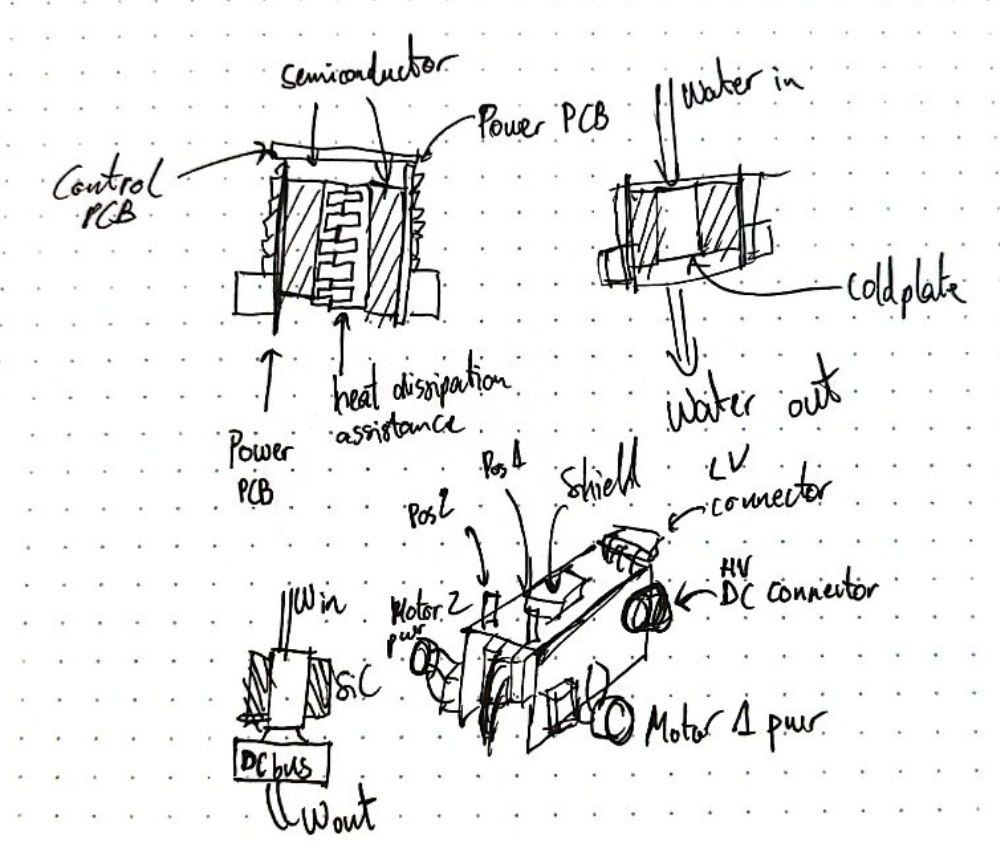 semiconductor
Power PCB
Control
PCB
heat dissipation
assistance
Power
PCB
Water in
Coldplate
Water out
Pos 1
Shield
LV
connector
Pos 2
HV
DC connector
Motor 2
pwr
Motor 1 pwr
Win
SiC
DC bus
Wout